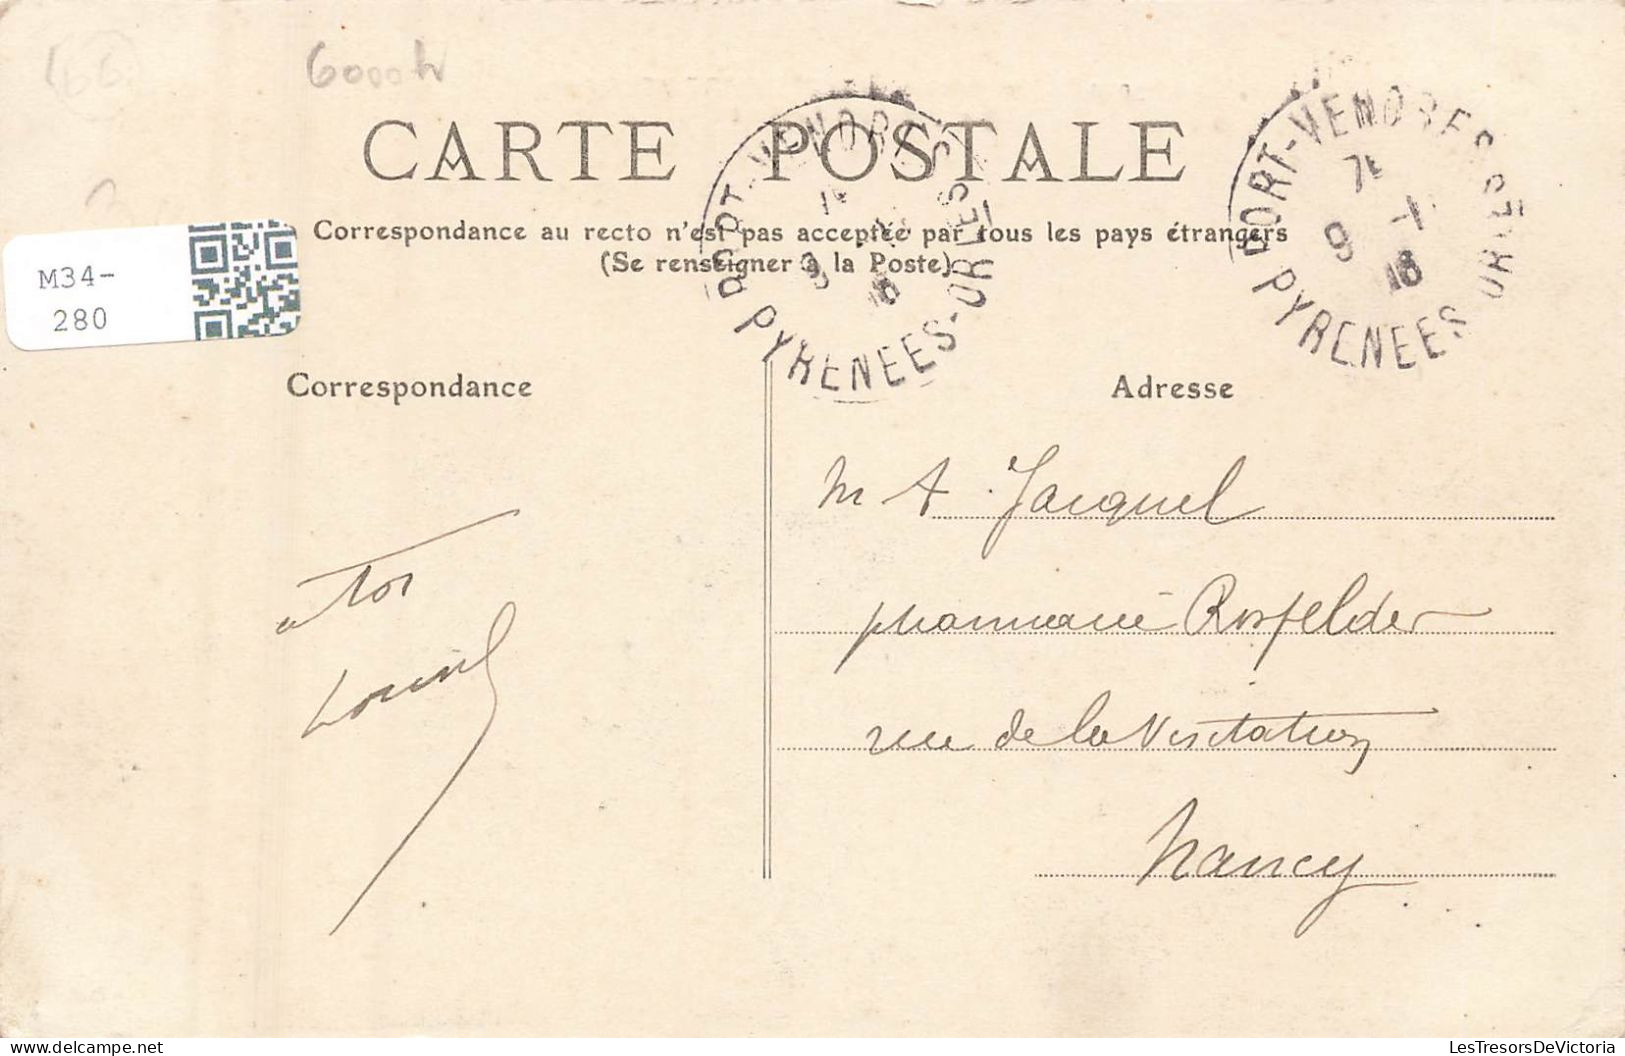 66
CARTE POSTALE
Correspondance au recto n'est pas acceptée par tous les pays étrangers
(Se renseigner à la Poste)
PORT-VENDRES
9
18
PYRENEES-ORLES
PORT-VENDRES
9 -1
18
PYRENEES ORLES
M34-
280
Correspondance
Adresse
M A Jacquel
pharmacie Rosfelder
rue de la Visitation
Nancy
LesTresorsDeVictoria